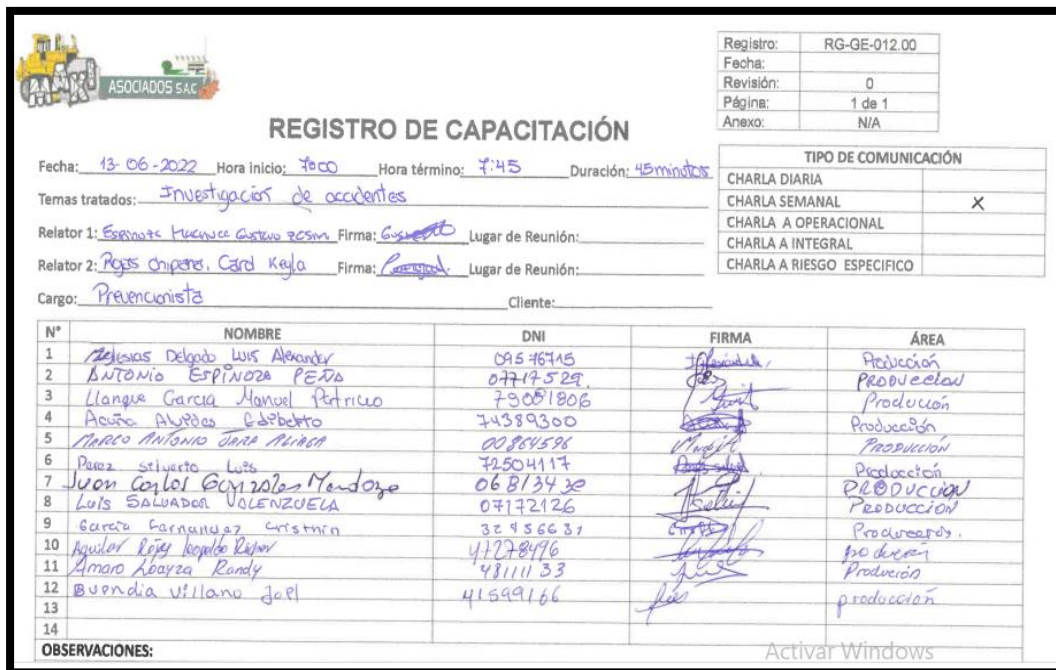 ASOCIADOS S.A.C
Registro: RG-GE-012.00
Fecha:
Revisión: 0
Página: 1 de 1
Anexo: N/A
REGISTRO DE CAPACITACIÓN
Fecha: 13-06-2022 Hora inicio: 7:00 Hora término: 7:45 Duración: 45 minutos
Temas tratados: Investigación de accidentes
Relator 1: Gustavo Firma: Lugar de Reunión:
Relator 2: Rojas Keyla Firma: Lugar de Reunión:
Cargo: Prevencionista Cliente:
TIPO DE COMUNICACIÓN
CHARLA DIARIA
CHARLA SEMANAL X
CHARLA A OPERACIONAL
CHARLA A INTEGRAL
CHARLA A RIESGO ESPECIFICO
N° NOMBRE DNI FIRMA ÁREA
1 Iglesias Delgado Luis Alexander 09576715 Producción
2 ANTONIO ESPINOZA PEÑA 07717529. PRODUCCION
3 Llanque Garcia Manuel Patricio 79081806 Producción
4 Acuña 74389300 Producción
5 MARCO ANTONIO JARA ALIAGA 00864596 PRODUCCIÓN
6 Perez Luis 72504117 Producción
7 Juan Carlos Gonzales Mendoza 06813430 PRODUCCION
8 Luis SALVADOR VALENZUELA 07172126 PRODUCCIÓN
9 Garcia
10 Aguilar Leopoldo
11 Amaro Loayza Randy 48111133 Produción
12 Buendia Villano Joel 41599166 producción
13
14
OBSERVACIONES:
Activar Windows